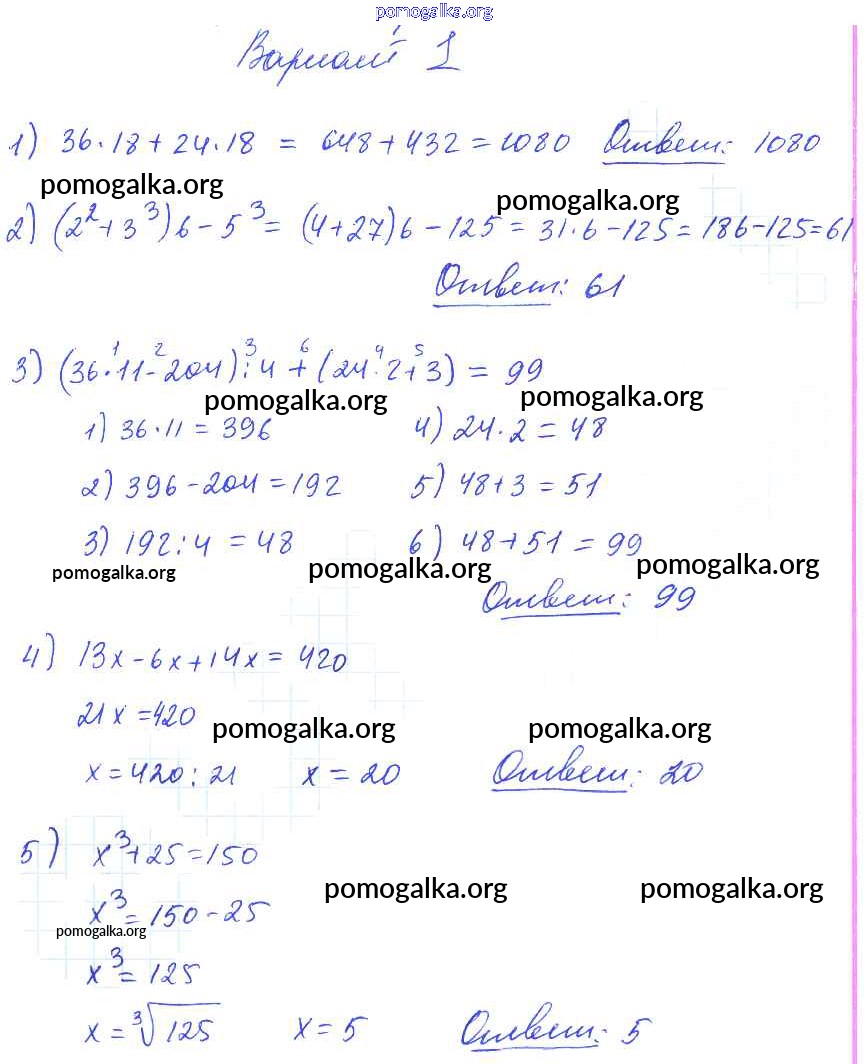 pomogalka.org
Вариант 1
1) 36·18+24·18 = 648+432=1080 Ответ: 1080
pomogalka.org
pomogalka.org
2) (2²+3³)6-5³= (4+27)6-125=31·6-125=186-125=61
Ответ: 61
1 2 3 6 4 5
3) (36·11-204):4+(24·2+3) = 99
pomogalka.org
pomogalka.org
1) 36·11=396 4) 24·2=48
2) 396-204=192 5) 48+3=51
3) 192:4=48 6) 48+51=99
pomogalka.org
pomogalka.org
pomogalka.org
Ответ: 99
4) 13x-6x+14x=420
21x=420
pomogalka.org
pomogalka.org
x=420:21 x=20 Ответ: 20
5) x³+25=150
pomogalka.org
pomogalka.org
x³=150-25
pomogalka.org
x³=125
x=∛125 x=5 Ответ: 5